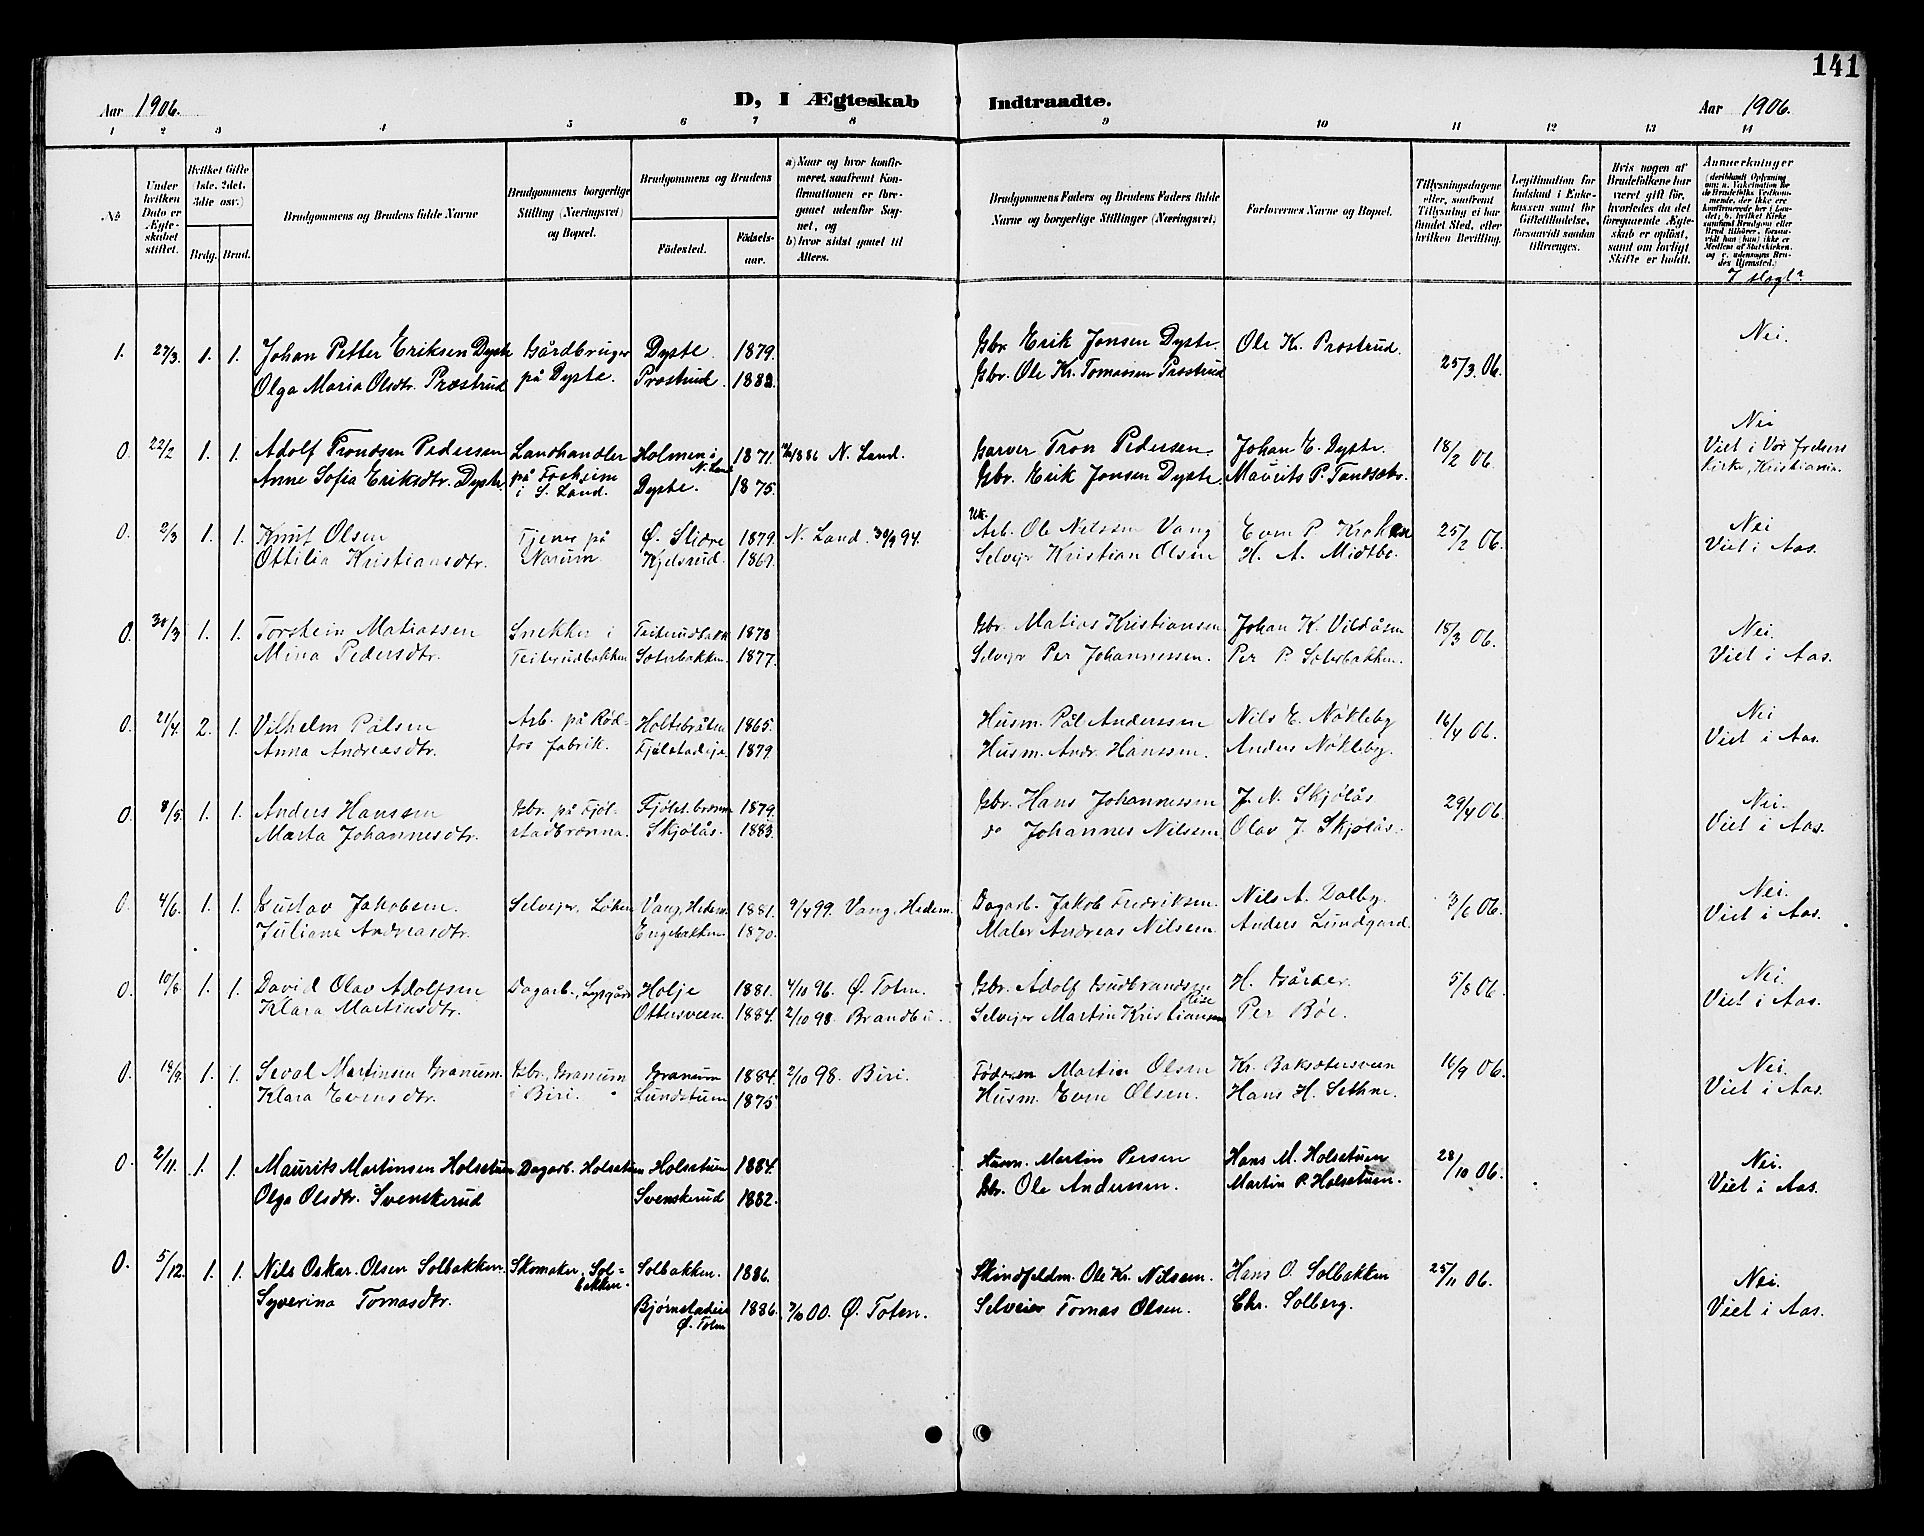 141
Aar 1906. D, I Ægteskab Indtraadte. Aar 1906.
1 2 3 4 5 6 7 8 9 10 11 12 13 14
No
Under hvilken Dato er Ægteskabet stiftet.
Hvilket Gifte (1ste, 2det, 3die osv.)
Brdg. Brud.
Brudgommens og Brudens fulde Navne
Brudgommens borgerlige Stilling (Næringsvei) og Bopæl.
Brudgommens og Brudens
Fødested. Fødselsaar.
a) Naar og hvor konfirmeret, saafremt Konfirmationen er foregaaet udenfor Sognet, og
b) hvor sidst gaaet til Alters.
Brudgommens Faders og Brudens Faders fulde Navne og borgerlige Stillinger (Næringsvei).
Forlovernes Navne og Bopæl.
Tillysningsdagene eller, saafremt Tillysning ei har fundet Sted, efter hvilken Bevilling.
Legitimation for Indskud i Enkekassen samt for Giftetilladelse, forsaavidt saadan tiltrænges.
Hvis nogen af Brudefolkene har været gift før, hvorledes da det foregaaende Ægteskab er opløst, samt om lovligt Skifte er holdt.
Anmerkninger
1. 27/3. 1. 1. Johan Petter Eriksen Dyste Gårdbruger Dyste. 1879. Gbr. Erik Jonsen Dyste. Ole K. Prostrud. 25/3.06. Nei.
Olga Maria Olsdtr. Præstrud på Dyste. Prostrud. Gbr. Ole Kr. Tomassen Prostrud
0. 22/2 1. 1. Adolf Trondsen Pedersen Landhandler Holmen i N. Land 1871. 1886 N. Land. Garver Tron Pedersen. Johan E. Dyste. 18/2 06. Nei
Anne Sofia Eriksdtr. Dyste. på i S. Land. Dyste. 1875. Gbr. Erik Jonsen Dyste. Maurits P. Viet i Vor Frelsers Kirke, Kristiania.
0. 2/3 1. 1. Knut Olsen Tjener på Ø. Slidre 1879. N. Land. 30/9 94. Arb. Ole Nilssen Vang Even P. 25/2 06. Nei
Ottilia Kristiansdtr. Narum Kjelsrud. 1869. Selvejer Kristian Olsen H. A. Midtbø. Viet i Aas.
0. 30/3 1. 1. Torstein Matiassen Snekker i Teiterudbakk 1878 Gbr. Matias Kristiansen Johan K. Vildåsen 18/3 06. Nei.
Mina Pedersdtr. Teiterudbakken Soterbakken. 1877. Selvejer Per Johannessen. Per P. Soterbakken. Viet i Aas.
0. 21/4. 2. 1. Vilhelm Pålsen Arb. på Rød- Holtsbråten 1865. Husm. Pål Anderssen Nils E. Nøkleby 16/4 06. Nei
Anna Andreasdtr. fos fabrik. 1879. Husm. Andr. Hanssen. Anders Nøkleby. Viet i Aas.
0. 8/5. 1. 1. Anders Hanssen Gbr. på Fjøl- 1879. Gbr. Hans Johannessen J. N. Skjølås 29/4 06. Nei.
Marta Johannesdtr. stadbrænna. Skjølås. 1883. do Johannes Nilsen Olav J. Skjølås. Viet i Aas.
0. 4/6. 1. 1. Gustav Jakobsen. Selvejer, Løken Vang, Hedem. 1881. 9/4 99. Vang, Hedem. Dagarb. Jakob Fredriksen. Nils A. Dalby. 3/6 06. Nei.
Juliane Andreasdtr. Engebakken 1870. Maler Andreas Nilsen. Anders Lundgård. Viet i Aas.
0. 10/8. 1. 1. David Olav Adolfsen Dagarb., Lysgård Holje 1881. 4/10 96. Ø. Toten. Gbr. Adolf Gudbrandsen H. Gårder. 5/8 06. Nei.
Klara Martinsdtr. Ottersveen. 1884. 2/10 98. Brandbu. Selvejer Martin Kristiansen Per Bøe. Viet i Aas.
0. 19/9. 1. 1. Seval Martinsen Granum. Gbr., Granum Granum 1884. 2/10 98. Biri. Martin Olsen Kr. Baksætersveen 16/9 06. Nei.
Klara Evensdtr. i Biri. Lundstuen 1875 Husm. Even Olsen. Hans H. Sethne. Viet i Aas.
0. 2/11. 1. 1. Maurits Martinsen Holsetuen Dagarb. Holsetuen Holsetuen 1884. Husm. Martin Persen Hans M. Holsetuen 28/10 06. Nei.
Olga Olsdtr. Svenskerud Svenskerud 1882. Gbr. Ole Anderssen. Martin P. Holsetuen. Viet i Aas.
0. 5/12. 1. 1. Nils Oskar Olsen Solbakken. Skomaker, Sol-bakken. Solbakken. 1886. Skindfeldm. Ole Kr. Nilsen. Hans O. Solbakken 25/11 06. Nei.
Syverina Tomasdtr. Bjørnstadeie Ø. Toten 1886. 7/10 00. Ø. Toten. Selveier Tomas Olsen. Chr. Solberg. Viet i Aas.